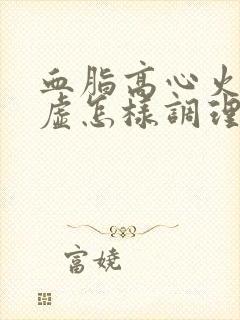 血脂高心火
虛怎樣調理
富娆